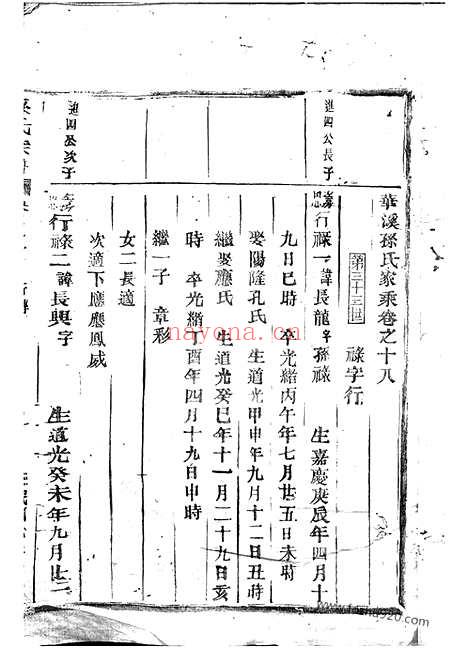 華溪孫氏家乘卷之十八
第三十三世
祿字行
進四公長子
行祿一諱長龍字孫祿 生嘉慶庚辰年四月十
九日巳時 卒光緒丙午年七月廿五日未時
娶陽隆孔氏 生道光甲申年九月十二日丑時
繼娶應氏 生道光癸巳年十一月二十九日亥
時 卒光緒丁酉年四月十九日申時
繼一子 章彩
女二長適
次適下應應鳳威
進四公次子
行祿二諱長興字 生道光癸未年九月廿二
nayona.com